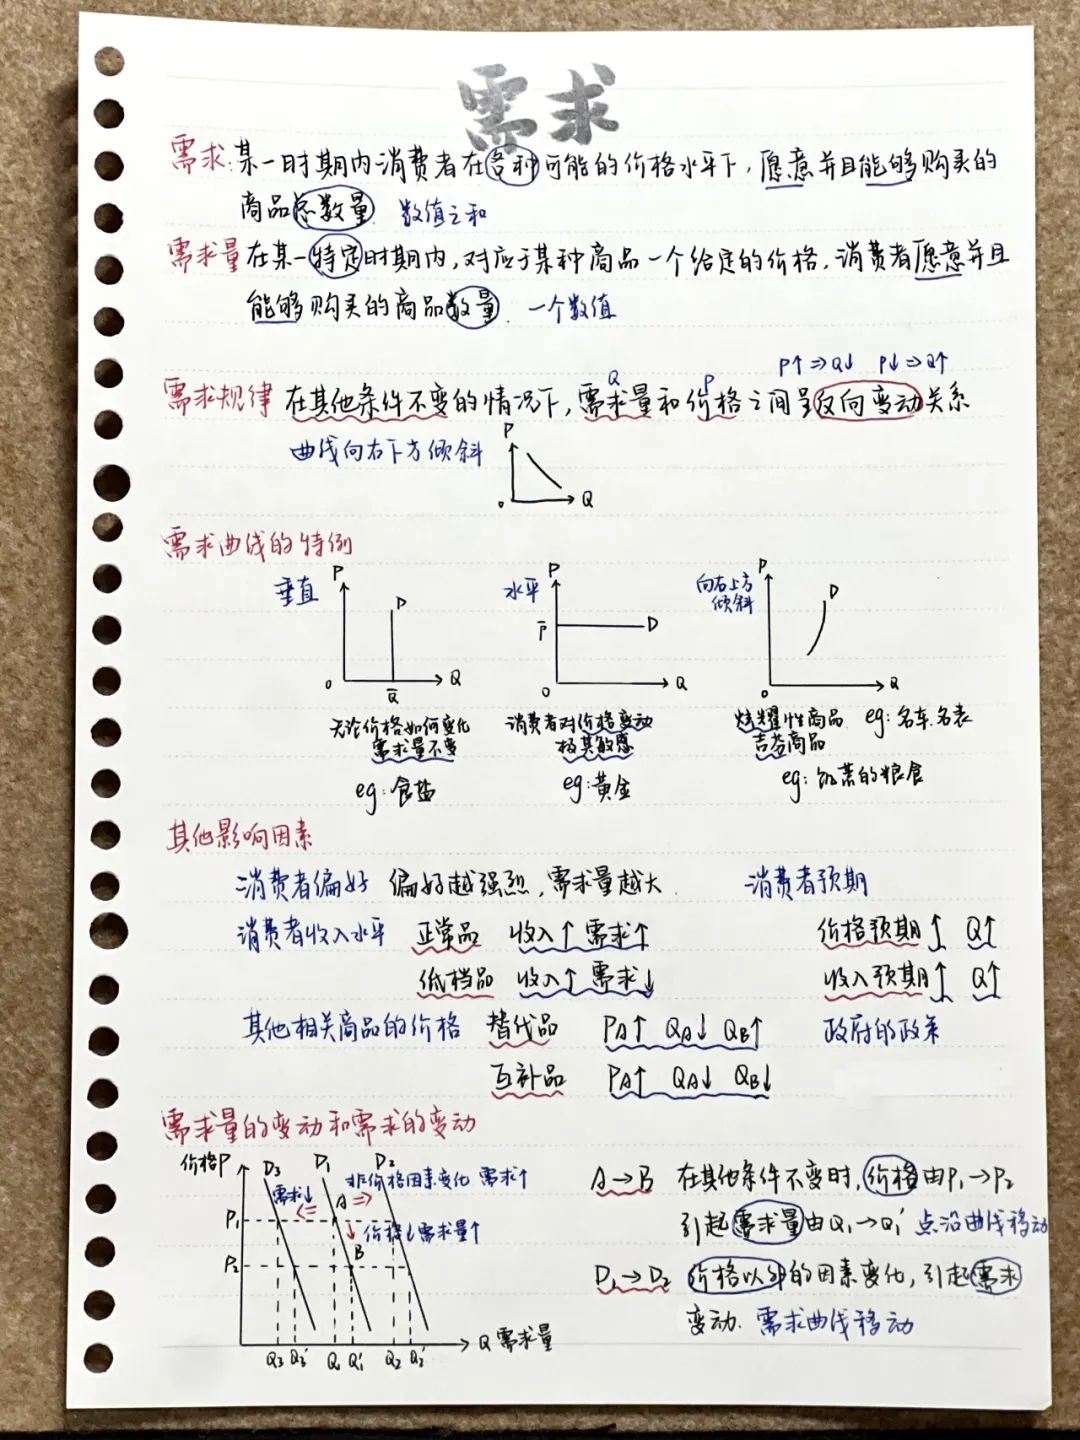 需求
需求:某一时期内消费者在各种可能的价格水平下,愿意并且能够购买的
商品总数量. 数值之和
需求量 在某一特定时期内,对应于某种商品一个给定的价格,消费者愿意并且
能够购买的商品数量. 一个数值
P↑⇒Q↓ P↓⇒Q↑
Q P
需求规律 在其他条件不变的情况下,需求量和价格之间呈反向变动关系
曲线向右下方倾斜
P
0 Q
需求曲线的特例
垂直 P D
0 Q̄ Q
无论价格如何变化
需求量不变
eg:食盐
水平 P
P̄ D
0 Q
消费者对价格变动
极其敏感
eg:黄金
向右上方
倾斜
P D
0 Q
炫耀性商品 eg:名车.名表
吉芬商品
eg:饥荒的粮食
其他影响因素
消费者偏好 偏好越强烈,需求量越大. 消费者预期
消费者收入水平 正常品 收入↑ 需求↑ 价格预期↑ Q↑
低档品 收入↑ 需求↓ 收入预期↑ Q↑
其他相关商品的价格 替代品 PA↑ QA↓ QB↑ 政府的政策
互补品 PA↑ QA↓ QB↓
需求量的变动和需求的变动
价格P D3 D1 D2
非价格因素变化 需求↑
需求↓ A
P1 价格↓需求量↑
B
P2
Q3 Q3' Q1 Q1' Q2 Q2' Q 需求量
A→B 在其他条件不变时,价格由P1→P2
引起需求量由Q1→Q1' 点沿曲线移动
D1→D2 价格以外的因素变化,引起需求
变动. 需求曲线移动